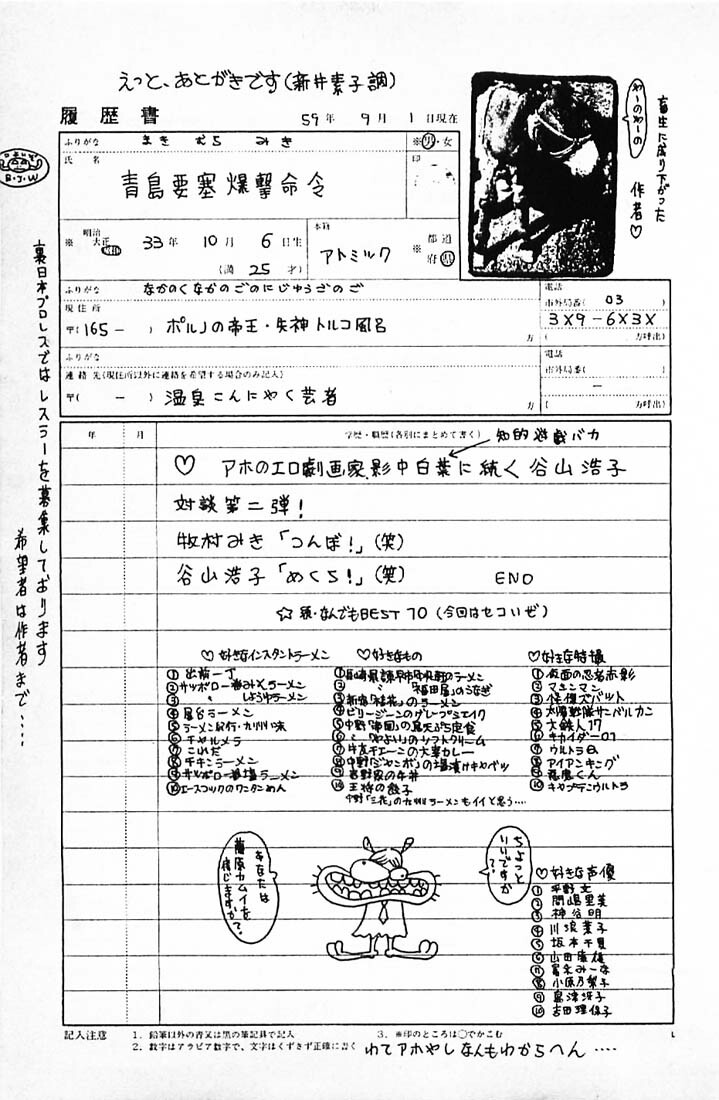 えっと、あとがきです(新井素子調)
履歴書
59年 9月 1日現在
ふりがな まきむら みき
※男・女
氏名
印
青島要塞爆撃命令
※ 明治 大正 昭和
33年 10月 6日生
(満 25才)
本籍
アトミック
※ 都道府県
ふりがな なかのくなかのごのにじゅうごのご
現住所
〒(165- ) ポルノの帝王・失神トルコ風呂
方
電話
市外局番( 03
3X9-6X3X
方呼出)
ふりがな
連絡先(現住所以外に連絡を希望する場合のみ記入)
〒( - ) 温泉こんにゃく芸者
方
電話
市外局番(
方呼出)
畜生に成り下がった
作者♡
わーのわーの
B・J・W
裏日本プロレスではレスラーを募集しております
希望者は作者まで‥‥
年 月 学歴・職歴(各別にまとめて書く)
知的遊戯バカ
♡ アホのエロ劇画家、影中白葉に続く谷山浩子
対談第二弾!
牧村みき「つんぼ!」(笑)
谷山浩子「めくら!」(笑) END
☆ 続・なんでもBEST10(今回はセコいぜ)
♡好きなインスタントラーメン
①出前一丁
②サッポロ一番みそラーメン
③〃 しょうゆラーメン
④屋台ラーメン
⑤ラーメン紀行・九州味
⑥チャルメラ
⑦これだ
⑧チキンラーメン
⑨サッポロ一番塩ラーメン
⑩エースコックのワンタンめん
♡好きなもの
②〃「福田屋」のうなぎ
③新宿「桂花」のラーメン
④ビリージーンのグレープシェイク
⑥〃「やよい」のソフトクリーム
⑦牛友チェーンの大辛カレー
⑧中野「ジャンボ」の塩漬けキャベツ
⑨吉野家の牛丼
⑩王将の餃子
中野「三花」の九州ラーメンもイイと思う‥‥
♡好きな特撮
①仮面の忍者赤影
②マシンマン
③怪傑ズバット
④太陽戦隊サンバルカン
⑤大鉄人17
⑥キカイダー01
⑦ウルトラQ
⑧アイアンキング
⑨悪魔くん
⑩キャプテンウルトラ
あなたは藤原カムイを信じますか?
ちょっといいですか?
♡好きな声優
①平野文
②間嶋里美
③神谷明
④川浪葉子
⑤坂本千夏
⑥山田康雄
⑦冨永みーな
⑧小原乃梨子
⑨島津冴子
⑩吉田理保子
記入注意
1. 鉛筆以外の青又は黒の筆記具で記入
2. 数字はアラビア数字で、文字はくずさず正確に書く
3. ※印のところは○でかこむ
わてアホやしなんもわからへん‥‥